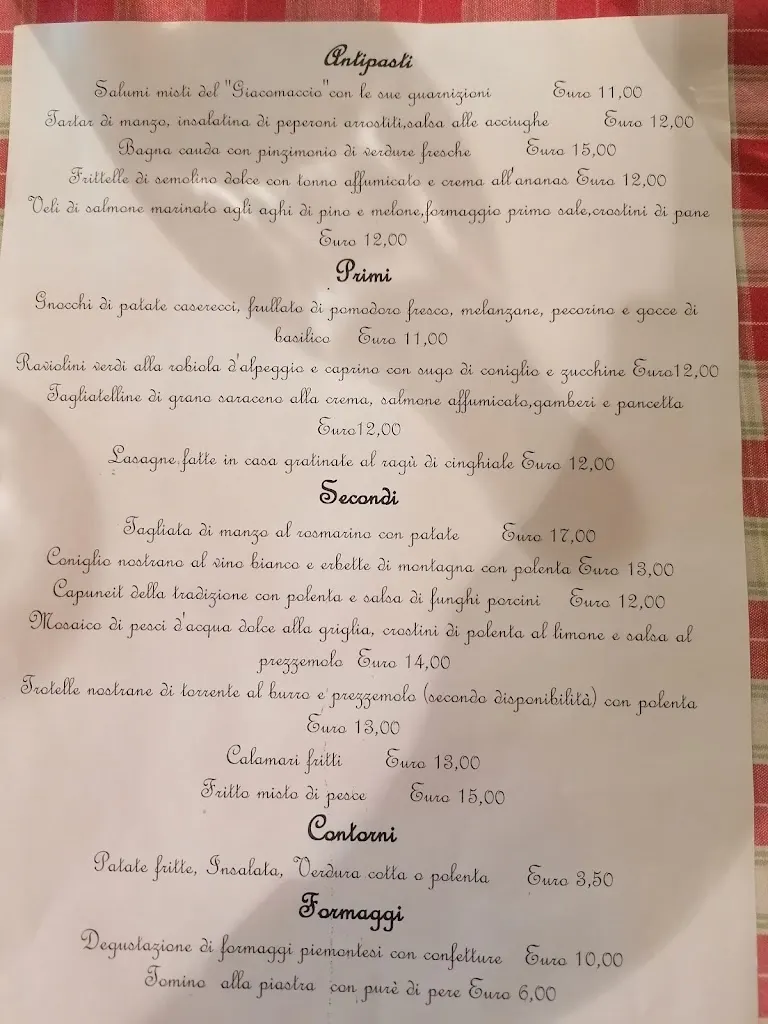 Antipasti
Salumi misti del "Giacomaccio"con le sue guarnizioni Euro 11,00
Tartar di manzo, insalatina di peperoni arrostiti,salsa alle acciughe Euro 12,00
Bagna cauda con pinzimonio di verdure fresche Euro 15,00
Frittelle di semolino dolce con tonno affumicato e crema all'ananas Euro 12,00
Veli di salmone marinato agli aghi di pino e melone,formaggio primo sale,crostini di pane
Euro 12,00
Primi
Gnocchi di patate caserecci, frullato di pomodoro fresco, melanzane, pecorino e gocce di
basilico Euro 11,00
Raviolini verdi alla robiola d'alpeggio e caprino con sugo di coniglio e zucchine Euro12,00
Tagliatelline di grano saraceno alla crema, salmone affumicato,gamberi e pancetta
Euro12,00
Lasagne fatte in casa gratinate al ragù di cinghiale Euro 12,00
Secondi
Tagliata di manzo al rosmarino con patate Euro 17,00
Coniglio nostrano al vino bianco e erbette di montagna con polenta Euro 13,00
Capuneit della tradizione con polenta e salsa di funghi porcini Euro 12,00
Mosaico di pesci d'acqua dolce alla griglia, crostini di polenta al limone e salsa al
prezzemolo Euro 14,00
Trotelle nostrane di torrente al burro e prezzemolo (secondo disponibilità) con polenta
Euro 13,00
Calamari fritti Euro 13,00
Fritto misto di pesce Euro 15,00
Contorni
Patate fritte, Insalata, Verdura cotta o polenta Euro 3,50
Formaggi
Degustazione di formaggi piemontesi con confetture Euro 10,00
Tomino alla piastra con purè di pere Euro 6,00